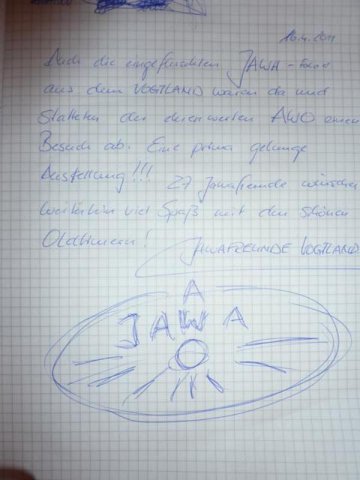 16.4.2011
Auch die eingefleischten JAWA-Fans
aus dem VOGTLAND waren da und
statteten der ehrenwerten AWO einen
Besuch ab. Eine prima gelunge
Ausstellung!!! 27 Jawafreunde wünschen
weiterhin viel Spaß mit den schönen
Oldtimern!
JAWAFREUNDE VOGTLAND
A
JAWA